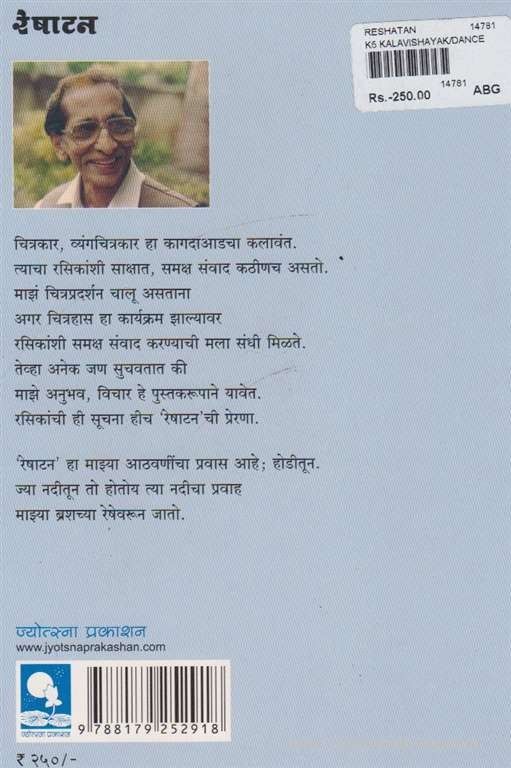 रेषाटन
RESHATAN 14781
K5 KALAVISHAYAK/DANCE
14781
Rs.-250.00 ABG
चित्रकार, व्यंगचित्रकार हा कागदाआडचा कलावंत.
त्याचा रसिकांशी साक्षात, समक्ष संवाद कठीणच असतो.
माझं चित्रप्रदर्शन चालू असताना
अगर चित्रहास हा कार्यक्रम झाल्यावर
रसिकांशी समक्ष संवाद करण्याची मला संधी मिळते.
तेव्हा अनेक जण सुचवतात की
माझे अनुभव, विचार हे पुस्तकरूपाने यावेत.
रसिकांची ही सूचना हीच ‘रेषाटन’ची प्रेरणा.
‘रेषाटन’ हा माझ्या आठवणींचा प्रवास आहे; होडीतून.
ज्या नदीतून तो होतोय त्या नदीचा प्रवाह
माझ्या ब्रशच्या रेषेवरून जातो.
ज्योत्स्ना प्रकाशन
www.jyotsnaprakashan.com
ज्योत्स्ना प्रकाशन
9 788179 252918
₹ २५०/-